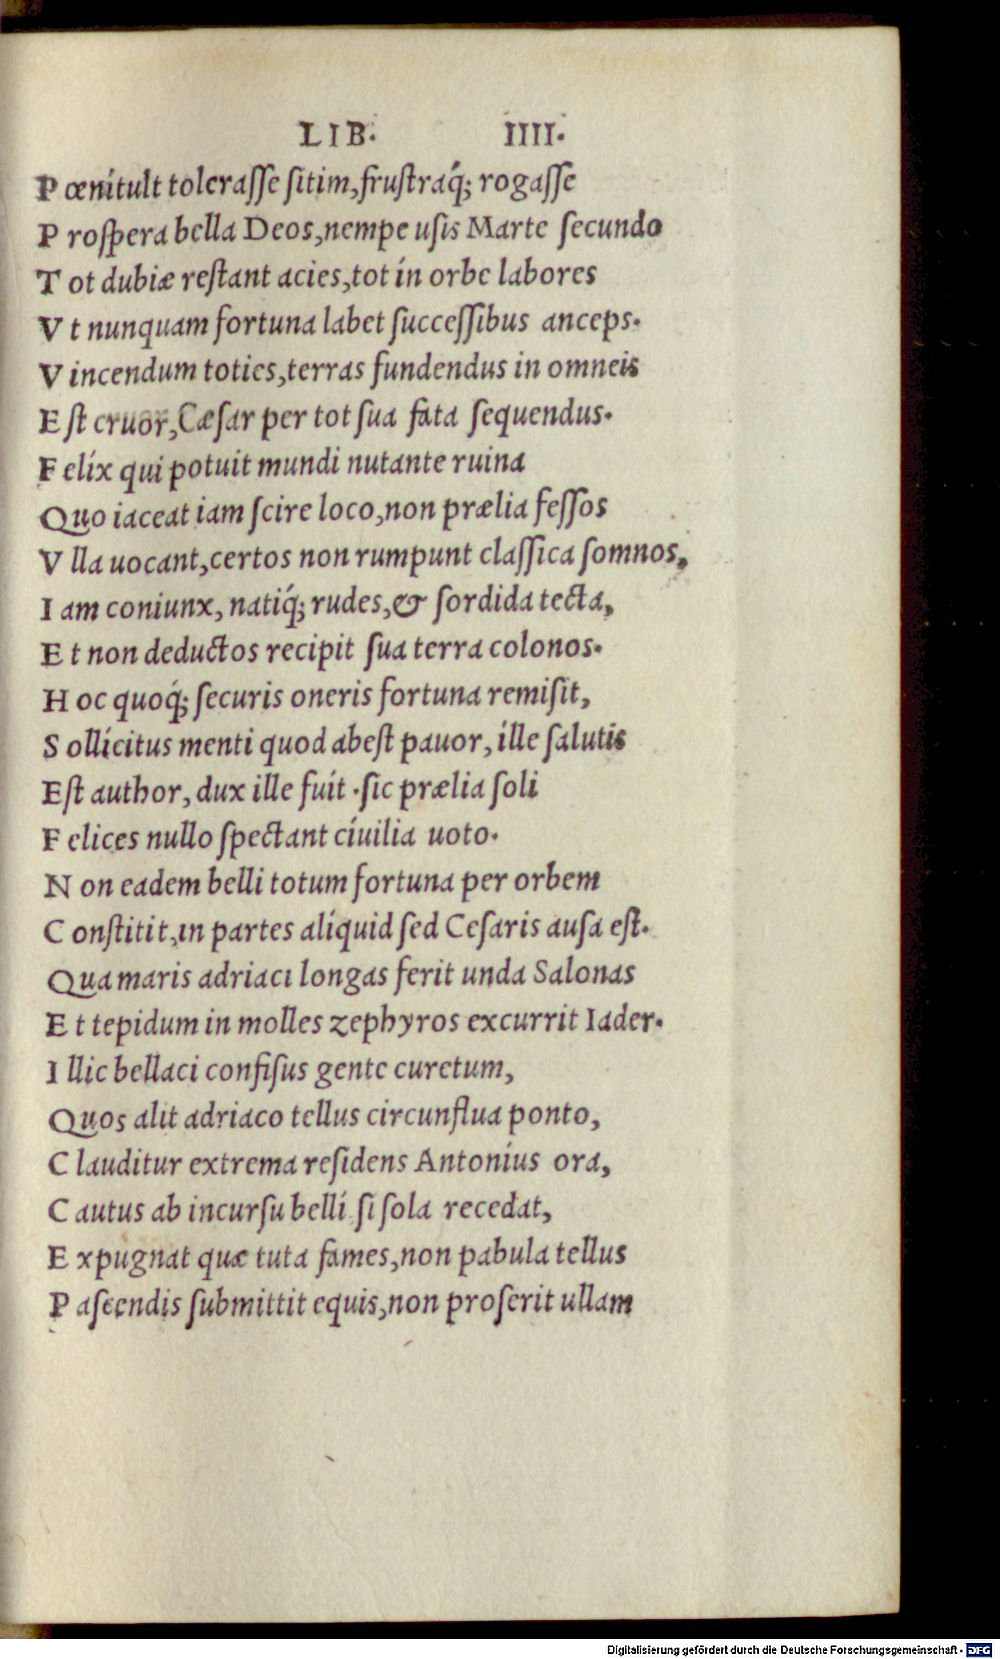 LIB. IIII.
P œnitult tolerasse sitim,frustraq́; rogasse
P rospera bella Deos,nempe usis Marte secundo
T ot dubiæ restant acies,tot in orbe labores
V t nunquam fortuna labet successibus anceps.
V incendum toties,terras fundendus in omneis
E st cruor,Cæsar per tot sua fata sequendus.
F elix qui potuit mundi nutante ruina
Quo iaceat iam scire loco,non prælia fessos
V lla uocant,certos non rumpunt classica somnos,
I am coniunx, natiq́; rudes,& sordida tecta,
E t non deductos recipit sua terra colonos.
H oc quoq́; securis oneris fortuna remisit,
S ollicitus menti quod abest pauor, ille salutis
Est author, dux ille fuit .sic prælia soli
F elices nullo spectant ciuilia uoto.
N on eadem belli totum fortuna per orbem
C onstitit,in partes aliquid sed Cesaris ausa est.
Qua maris adriaci longas ferit unda Salonas
E t tepidum in molles zephyros excurrit Iader.
I llic bellaci confisus gente curetum,
Quos alit adriaco tellus circunflua ponto,
C lauditur extrema residens Antonius ora,
C autus ab incursu belli si sola recedat,
E xpugnat quæ tuta fames,non pabula tellus
P ascendis submittit equis,non proserit ullam
Digitalisierung gefördert durch die Deutsche Forschungsgemeinschaft - DFG